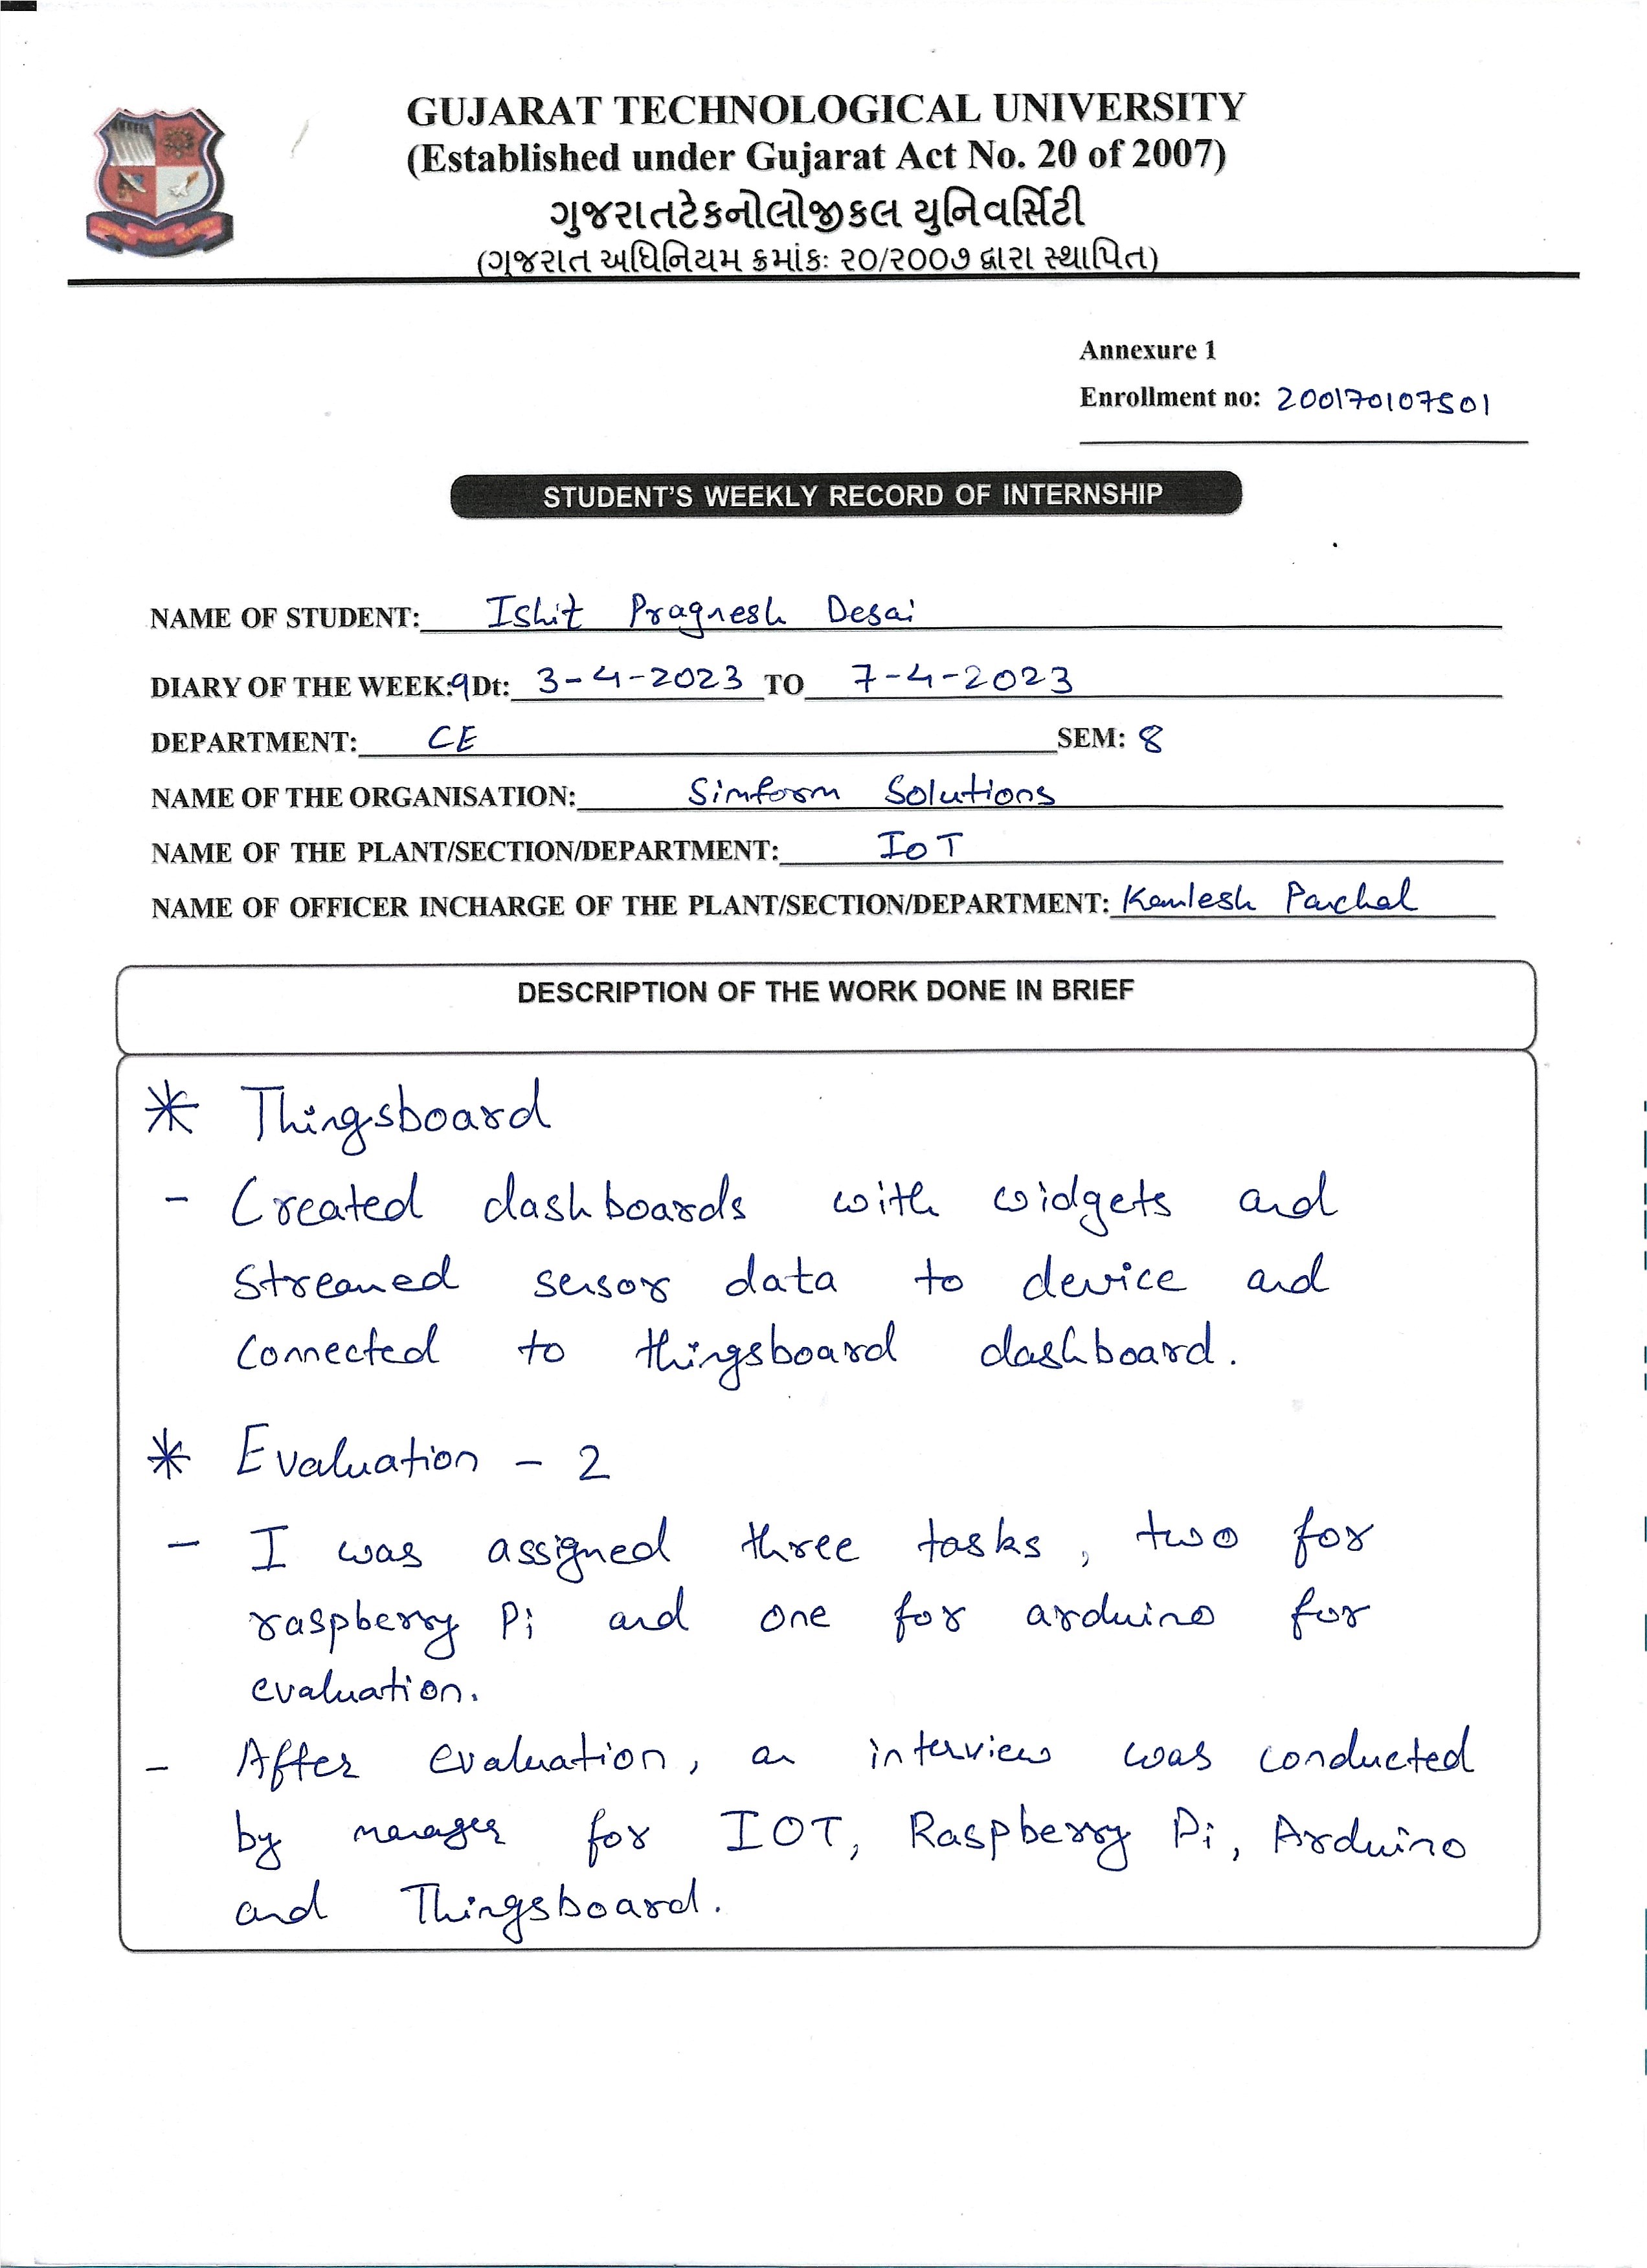 GUJARAT TECHNOLOGICAL UNIVERSITY
(Established under Gujarat Act No. 20 of 2007)
ગુજરાતટેકનોલોજીકલ યુનિવર્સિટી
(ગુજરાત અધિનિયમ ક્રમાંકઃ ૨૦/૨૦૦૭ દ્વારા સ્થાપિત)
Annexure 1
Enrollment no: 200170107501
STUDENT'S WEEKLY RECORD OF INTERNSHIP
NAME OF STUDENT: Ishit Pragnesh Desai
DIARY OF THE WEEK:9 Dt: 3-4-2023 TO 7-4-2023
DEPARTMENT: CE SEM: 8
NAME OF THE ORGANISATION: Simform Solutions
NAME OF THE PLANT/SECTION/DEPARTMENT: IoT
NAME OF OFFICER INCHARGE OF THE PLANT/SECTION/DEPARTMENT: Kamlesh Panchal
DESCRIPTION OF THE WORK DONE IN BRIEF
* Thingsboard
- Created dashboards with widgets and
streamed sensor data to device and
connected to thingsboard dashboard.
* Evaluation - 2
- I was assigned three tasks, two for
raspberry Pi and one for arduino for
evaluation.
- After evaluation, an interview was conducted
by manager for IOT, Raspberry Pi, Arduino
and Thingsboard.